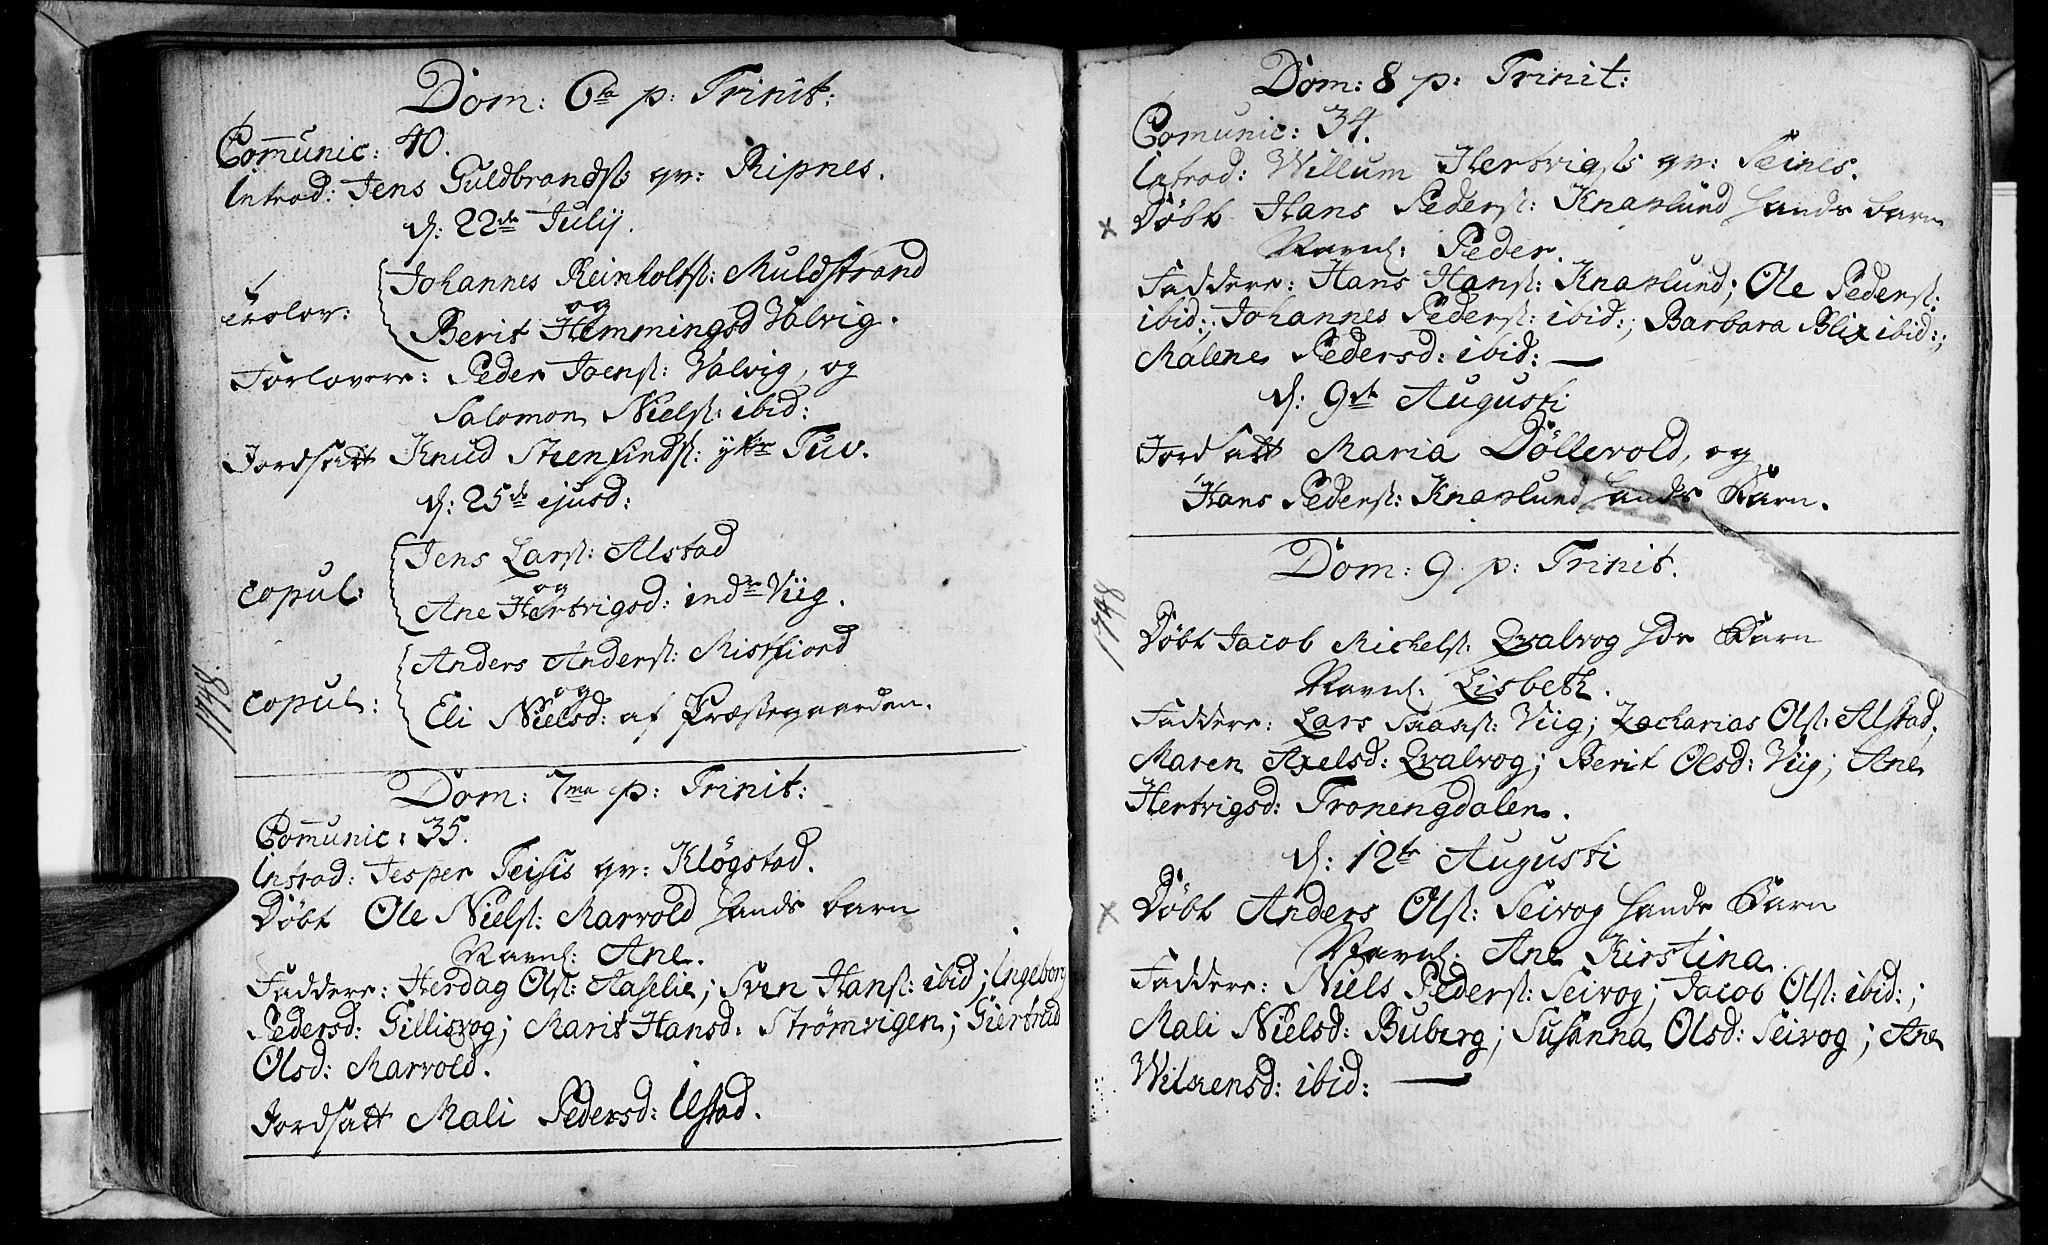 Dom: 6ta p: Trinit:
Com̅unic: 40.
Introd: Jens Guldbrands: qv: Ripnes.
d: 22de Julij.
trolov: Johannes Reinholtss: Muldstrand
og
Berit Hemmingsd Valvig.
Forlovere: Peder Joenss: Valvig, og
Salomon Nielss: ibid:
Jordsatt Knud Steenfindss: yttre Tuv.
d: 25de ejusd:
copul: Jens Larss: Alstad
og
Ane Hertvigsd: indre Viig.
copul: Anders Anderss: Mistfiord
og
Eli Nielsd: af Præstegaarden.
1748.
Dom: 7ma p: Trinit:
Com̅unic: 35.
Introd: Jesper Teisis qv: Kløgstad.
Døbt Ole Nielss: Marvold hands barn
Navnl: Ane.
Faddere: Herdag Olss: Aaselie; Sven Hanss: ibid; Ingeborg
Pedersd: Gillisvog; Marit Hansd: Strømvigen; Giertrud
Olsd: Marvold.
Jordsatt Mali Pedersd: Ilstad.
Dom: 8 p: Trinit:
Comunic: 34.
Introd: Willum Hertvigss qv: Seines.
Døbt Hans Pederss: Knaplund hands barn
Navnl: Peder.
Faddere: Hans Hanss: Knaplund; Ole Pederss:
ibid:; Johannes Pederss: ibid:; Barbara Blix ibid:;
Malene Pedersd: ibid: —
d: 9de Augusti
Jordsatt Maria Döllevold, og
Hans Pederss: Knaplund hands Barn.
1748
Dom: 9. p: Trinit.
Døbt Jacob Michelss: Qvalvog hds Barn
Navnl: Lisbeth.
Faddere: Lars Viig; Zacharias Olss: Alstad;
Maren Axelsd: Qvalvog; Berit Olsd: Viig; Ane
Hertvigsd: Tronengdalen.
d: 12te Augusti
Døbt Anders Olss: Seivog hands Barn
Navnl: Ane Kirstina
Faddere: Niels Pederss: Seivog; Jacob Olss: ibid:;
Mali Nielsd: Buberg; Susanna Olsd: Seivog; Ane
Wilkensd: ibid: —